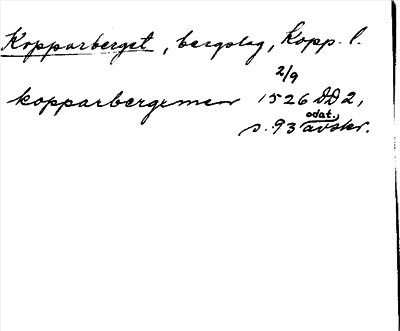 Kopparberget, bergslag, Kopp. l.
2/9
kopparbergxmen 1526 DD 2,
odat.
s. 93 avskr.